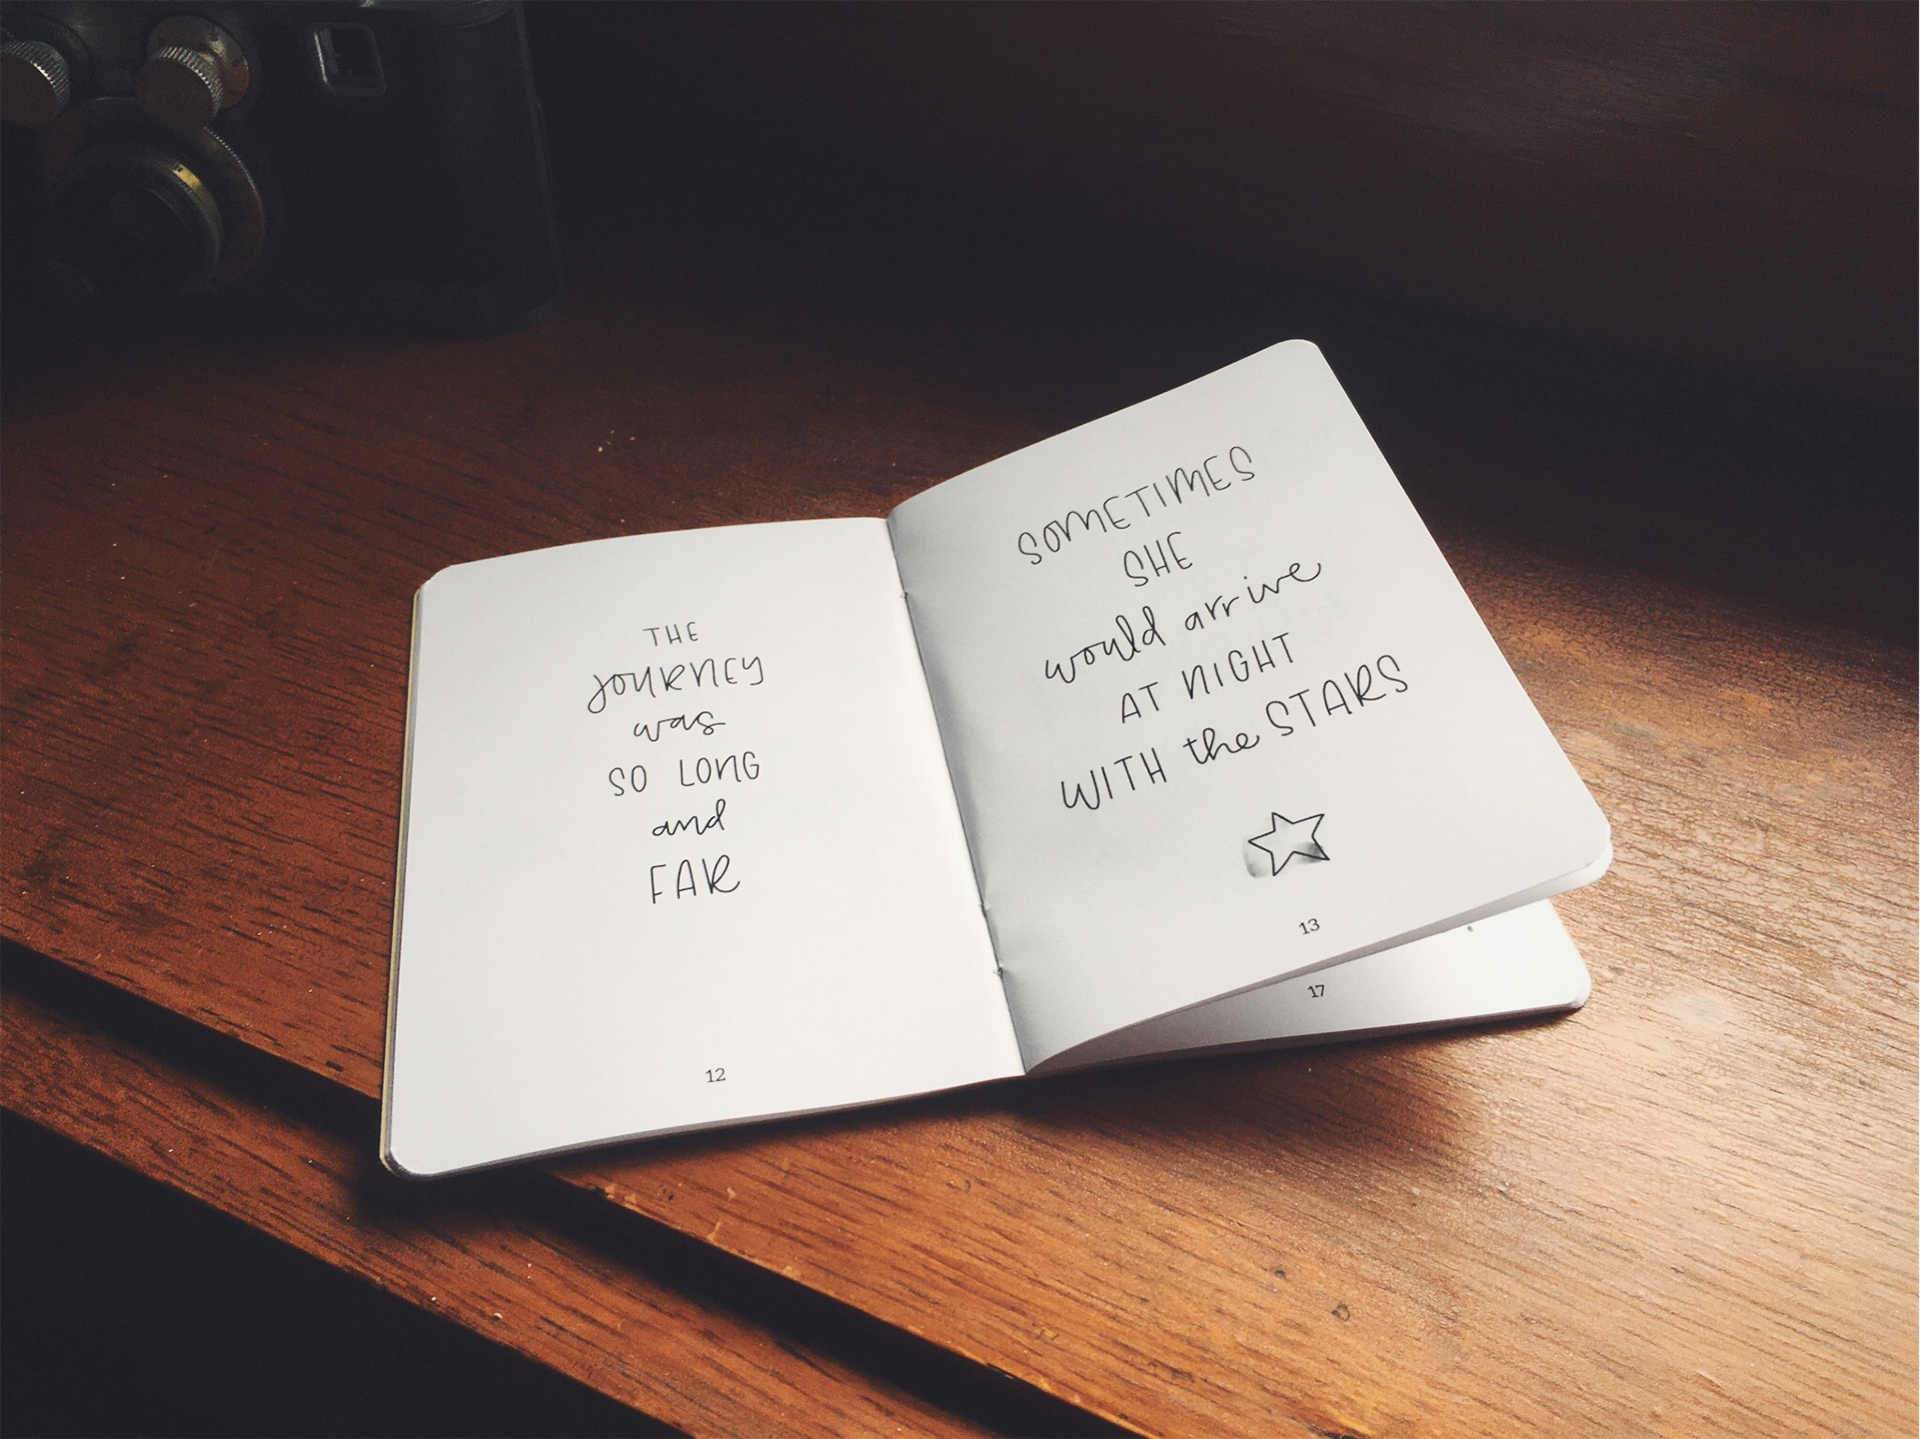 THE
JOURNEY
was
SO LONG
and
FAR
12
SOMETIMES
SHE
would arrive
AT NIGHT
WITH the STARS
13
17